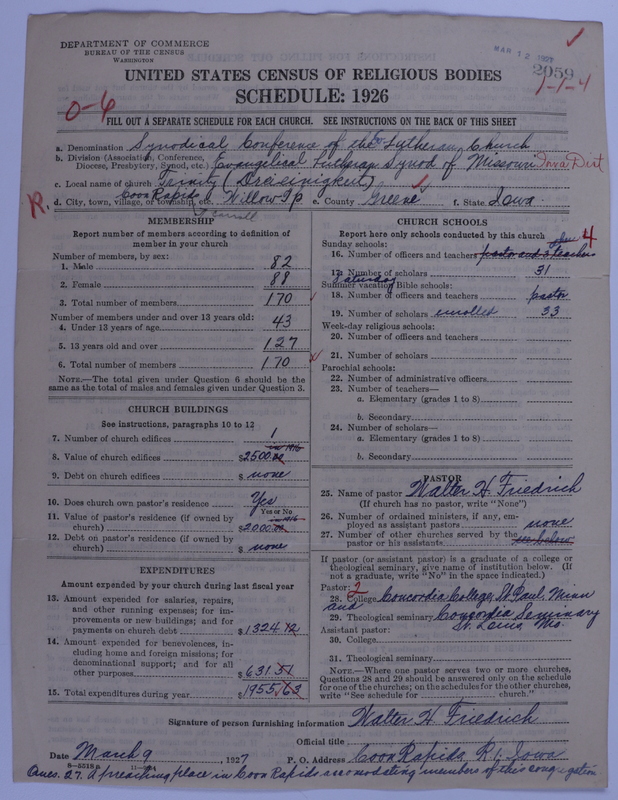 DEPARTMENT OF COMMERCE
BUREAU OF THE CENSUS
WASHINGTON
MAR 12 1927
2059
1-1-4
UNITED STATES CENSUS OF RELIGIOUS BODIES
SCHEDULE: 1926
0-6
FILL OUT A SEPARATE SCHEDULE FOR EACH CHURCH. SEE INSTRUCTIONS ON THE BACK OF THIS SHEET
a. Denomination Synodical Conference of the Ev Lutheran Church
b. Division (Association, Conference, Diocese, Presbytery, Synod, etc.) Evangelical Lutheran Synod of Missouri Iowa Dist
c. Local name of church Trinity (Dreieinigkeit)
R. d. City, town, village, or township, etc. Coon Rapids Willow Tp e. County Greene f. State Iowa
Carroll
MEMBERSHIP
Report number of members according to definition of member in your church
Number of members, by sex:
1. Male 82
2. Female 88
3. Total number of members 170
Number of members under and over 13 years old:
4. Under 13 years of age 43
5. 13 years old and over 127
6. Total number of members 170
NOTE.—The total given under Question 6 should be the same as the total of males and females given under Question 3.
CHURCH BUILDINGS
See instructions, paragraphs 10 to 12
7. Number of church edifices 1
in 1916
8. Value of church edifices $2500.00
9. Debt on church edifices $ none
10. Does church own pastor's residence Yes
Yes or No
in 1916
11. Value of pastor's residence (if owned by church) $2000.00
12. Debt on pastor's residence (if owned by church) $ none
EXPENDITURES
Amount expended by your church during last fiscal year
13. Amount expended for salaries, repairs, and other running expenses; for improvements or new buildings; and for payments on church debt $1324.12
14. Amount expended for benevolences, including home and foreign missions; for denominational support; and for all other purposes $631.51
15. Total expenditures during year $1955.63
CHURCH SCHOOLS
Report here only schools conducted by this church
Sunday schools:
16. Number of officers and teachers pastor and 3 teachers 4
17. Number of scholars 31
Saturday
Summer vacation Bible schools:
18. Number of officers and teachers pastor
19. Number of scholars enrolled 33
Week-day religious schools:
20. Number of officers and teachers
21. Number of scholars
Parochial schools:
22. Number of administrative officers
23. Number of teachers—
a. Elementary (grades 1 to 8)
b. Secondary
24. Number of scholars—
a. Elementary (grades 1 to 8)
b. Secondary
PASTOR
25. Name of pastor Walter H. Friedrich
(If church has no pastor, write "None")
26. Number of ordained ministers, if any, employed as assistant pastors none
27. Number of other churches served by the pastor or his assistants see below
If pastor (or assistant pastor) is a graduate of a college or theological seminary, give name of institution below. (If not a graduate, write "No" in the space indicated.)
Pastor: 2
28. College Concordia College, St Paul, Minn
and
29. Theological seminary Concordia Seminary
St. Louis, Mo.
Assistant pastor:
30. College
31. Theological seminary
NOTE.—Where one pastor serves two or more churches, Questions 28 and 29 should be answered only on the schedule for one of the churches; on the schedules for the other churches, write "See schedule for church."
Signature of person furnishing information Walter H. Friedrich
Official title
Date March 9, 1927 P. O. Address Coon Rapids, R1, Iowa
8—5518
Ques. 27. A preaching place in Coon Rapids accomodating members of this congregation